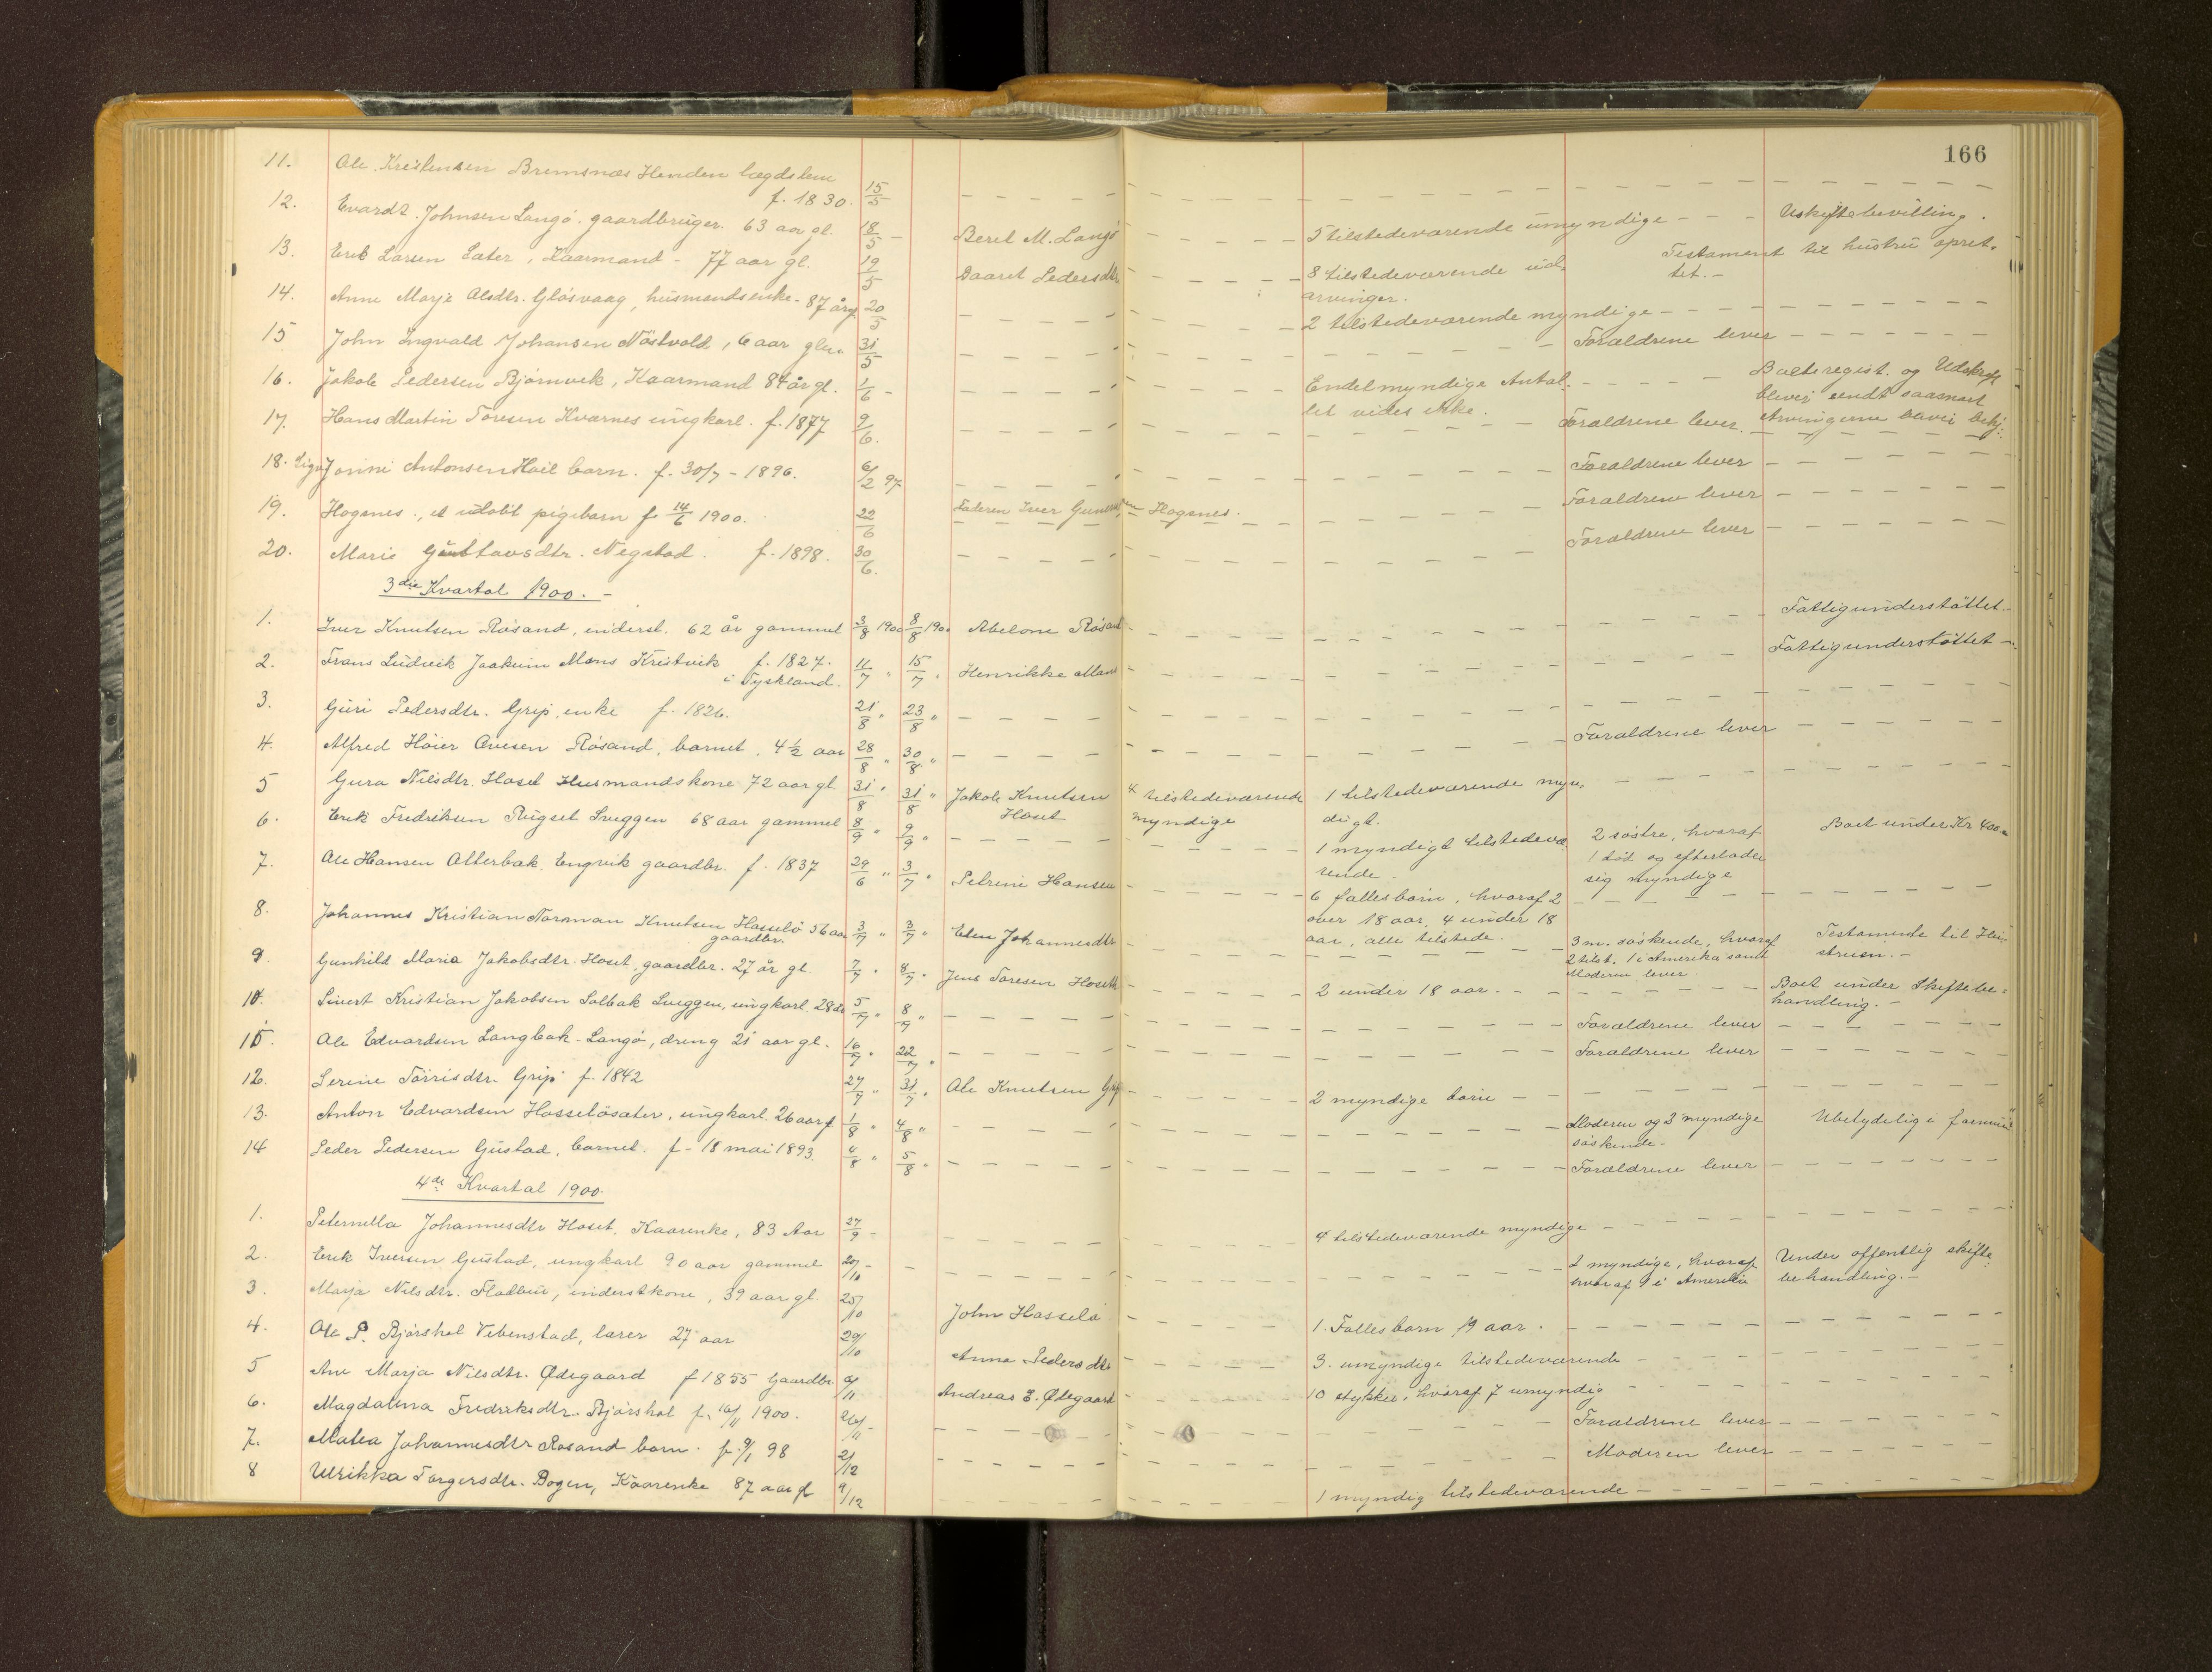 166
11. Ole Kristensen Bremsnæs Henden lægdslem
f. 1830. 15/5
12. Evardt Johnsen Langö gaardbruger 63 aar gl. 18/5 Beret M. Langö 5 tilstedeværende umyndige Uskiftebevilling.
13. Erik Larsen Sæter, Kaarmand - 77 aar gl. 19/5 Daaret Pedersdtr 8 tilstedeværende Testament til hustru opret-
arvinger. tet. -
14. Anne Marje Olsdtr. Glösvaag, husmandsenke - 87 år gl 20/5 2 tilstedeværende myndige
15 John Ingvald Johansen Nöstvold, 6 aar glm. 31/5 Forældrene lever
16. Jakob Pedersen Björnvik, Kaarmand 84 år gl. 1/6 Endel myndige Antal- Boets regist. og Udskrift
let vides ikke. bliver sendt saasnart
Arvingerne
17. Hans Martin Toresen Kvarnes ungkarl. f. 1877 9/6. Forældrene lever.
18. Antonsen barn. f. 30/7 - 1896. 6/2 97 Forældrene lever
19. Hogsnes, et udöbt pigebarn f. 14/6 1900. 22/6 Faderen Iver Hogsnes. Forældrene lever
20. Marie Gustavsdtr. Negstad. f. 1898. 30/6. Forældrene lever
3die Kvartal 1900. -
1. Iver Knutsen Rösand, inderst. 62 år gammel 3/8 1900 8/8 1900 Abelone Rösand Fattigunderstöttet.
2. Frans Ludvik Joakim Mons Kristvik f. 1827. 11/7 " 15/7 " Henrikke Mons Fattigunderstöttet -
i Tyskland.
3. Guri Pedersdtr. Grip, enke f. 1826. 21/8 " 23/8 "
4. Alfred Höier Ovesen Rösand, barnet, 4 1/2 aar 28/8 " 30/8 " Forældrene lever
5 Gura Nilsdtr. Hoset Husmandskone 72 aar gl 31/8 " 31/8 " Jakob Knutsen 4 tilstedeværende 1 tilstedeværende myn-
Hoset myndige digt.
6. Erik Fredriksen Rugset Sveggen 68 aar gammel 8/9 " 9/9 " 1 myndigt tilstedevæ- 2 söstre, hvoraf Boet under Kr 400
rende. 1 död og efterlader
sig myndige
7. Ole Hansen Olterbak Engvik gaardbr. f. 1837 29/6 " 3/7 " Petrine Hansen 6 fællesbörn, hvoraf 2
over 18 aar, 4 under 18
aar, alle tilstede.
8. Johannes Kristian Norman Knutsen Hasselö 56 aar 3/7 " 3/7 " Elen Johannesdtr 3 m. söskende, hvoraf Testamente til Hu-
gaardbr. 2 tilst. 1 i Amerika samt struen. -
Moderen lever.
9. Gunhild Maria Jakobsdtr. Hoset, gaardbr. 27 år gl. 7/7 " 8/7 " Jens Toresen Hoset 2 under 18 aar. Boet under Skiftebe-
handling. -
10. Sivert Kristian Jakobsen Solbak Sveggen, ungkarl 28 5/7 " 8/7 " Forældrene lever
11. Ole Edvardsen Langbak - Langö, dreng 21 aar gl. 16/7 " 22/7 " Forældrene lever
12. Serine Torrisdtr. Grip f. 1842 27/7 " 31/7 " Ole Knutsen Grip 2 myndige börn
13. Anton Edvardsen Hasselösæter, ungkarl. 26 aar 1/8 " 4/8 " Moderen og 3 myndige Ubetydelig i formue
söskende.
14 Peder Pedersen Gustad, barnet. f - 18 mai 1893. 4/8 " 5/8 " Forældrene lever
4de Kvartal 1900.
1. Peternella Johannesdtr Hoset, Kaarenke, 83 Aar 27/9 4 tilstedeværende myndige
2. Erik Iversen Gustad, ungkarl 90 aar gammel 20/10 2 myndige, hvoraf Under offentlig skifte
hvoraf 1 i Amerika behandling. -
3. Marja Nilsdtr. Flatbu, inderstkone, 39 aar gl. 25/10 John Hasselö 1. Fælles barn 19 aar.
4. Ole P. Björshol Vebenstad, lærer 27 aar 29/10 Anna Pedersdtr 3. umyndige tilstedeværende
5 Ane Marja Nilsdtr. Ødegaard f 1855 Gaardbr. 9/11 Andreas E. Ødegaard 10 stykker, hvoraf 7 umyndig
6. Magdalena Fredriksdtr. Björshol f. 16/11 1900. 26/11 Forældrene lever
7. Matea Johannesdtr Rosand barn. f. 9/1 98 2/12 Moderen lever
8 Ulrikka Torgersdtr. Bogen, Kaarenke 87 aar gl 9/12 1 myndig tilstedeværende